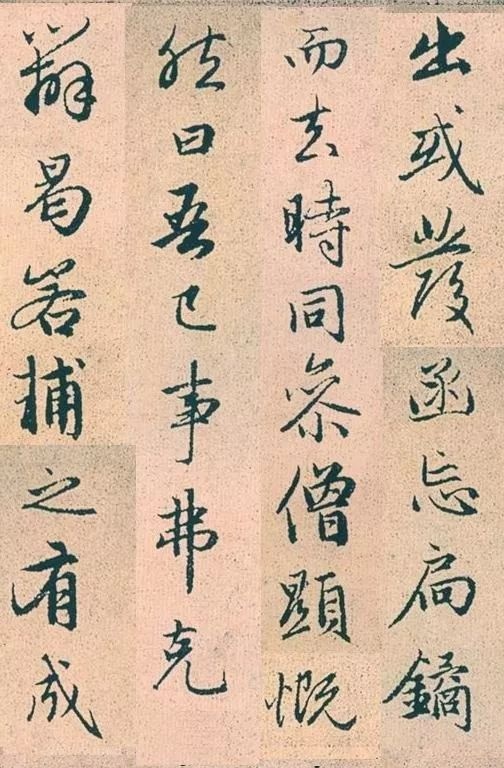 出或發函忘扃鐍
而去時同參僧顯慨
然曰吾已事弗克
辦曷若補之有成